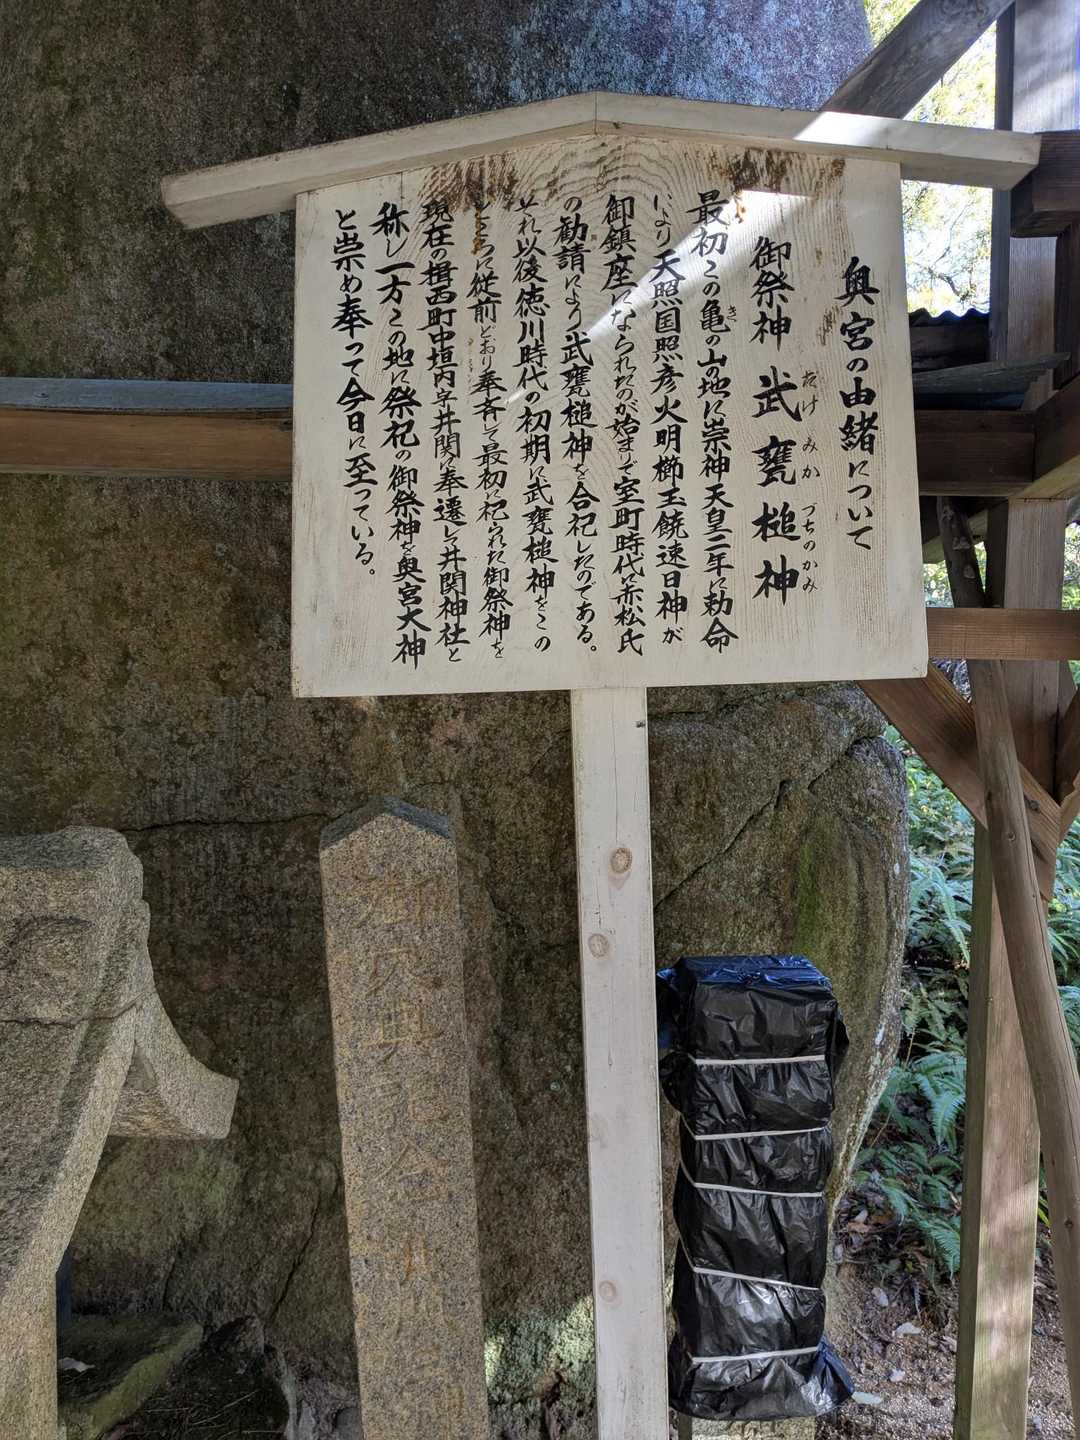 奥宮の由緒について
御祭神 武甕槌神
たけ みか づちのかみ
最初この亀の山の地に崇神天皇二年に勅命
き
により天照国照彦火明櫛玉饒速日神が
御鎮座になられたのが始まりで室町時代に赤松氏
の勧請により武甕槌神を合祀したのである。
それ以後徳川時代の初期に武甕槌神をこの
ところに従前どおり奉斉して最初に祀られた御祭神を
現在の揖西町中垣内字井関に奉遷して井関神社と
称し一方この地に祭祀の御祭神を奥宮大神
と崇め奉って今日に至っている。